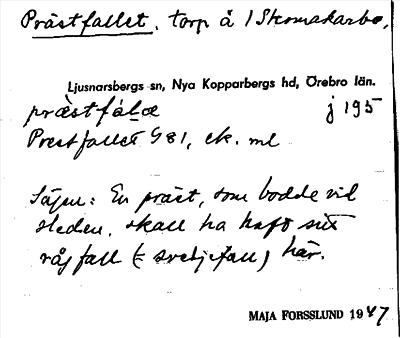 Prästfallet, torp å 1 Skomakarbo,
Ljusnarsbergs sn, Nya Kopparbergs hd, Örebro län.
præstfálæ j 195
Prestfallet G 81, ek. ml
Sägen: En präst, som bodde vid
staden, skall ha haft sitt
rågfall (= svedjefall) här.
MAJA FORSSLUND 1947